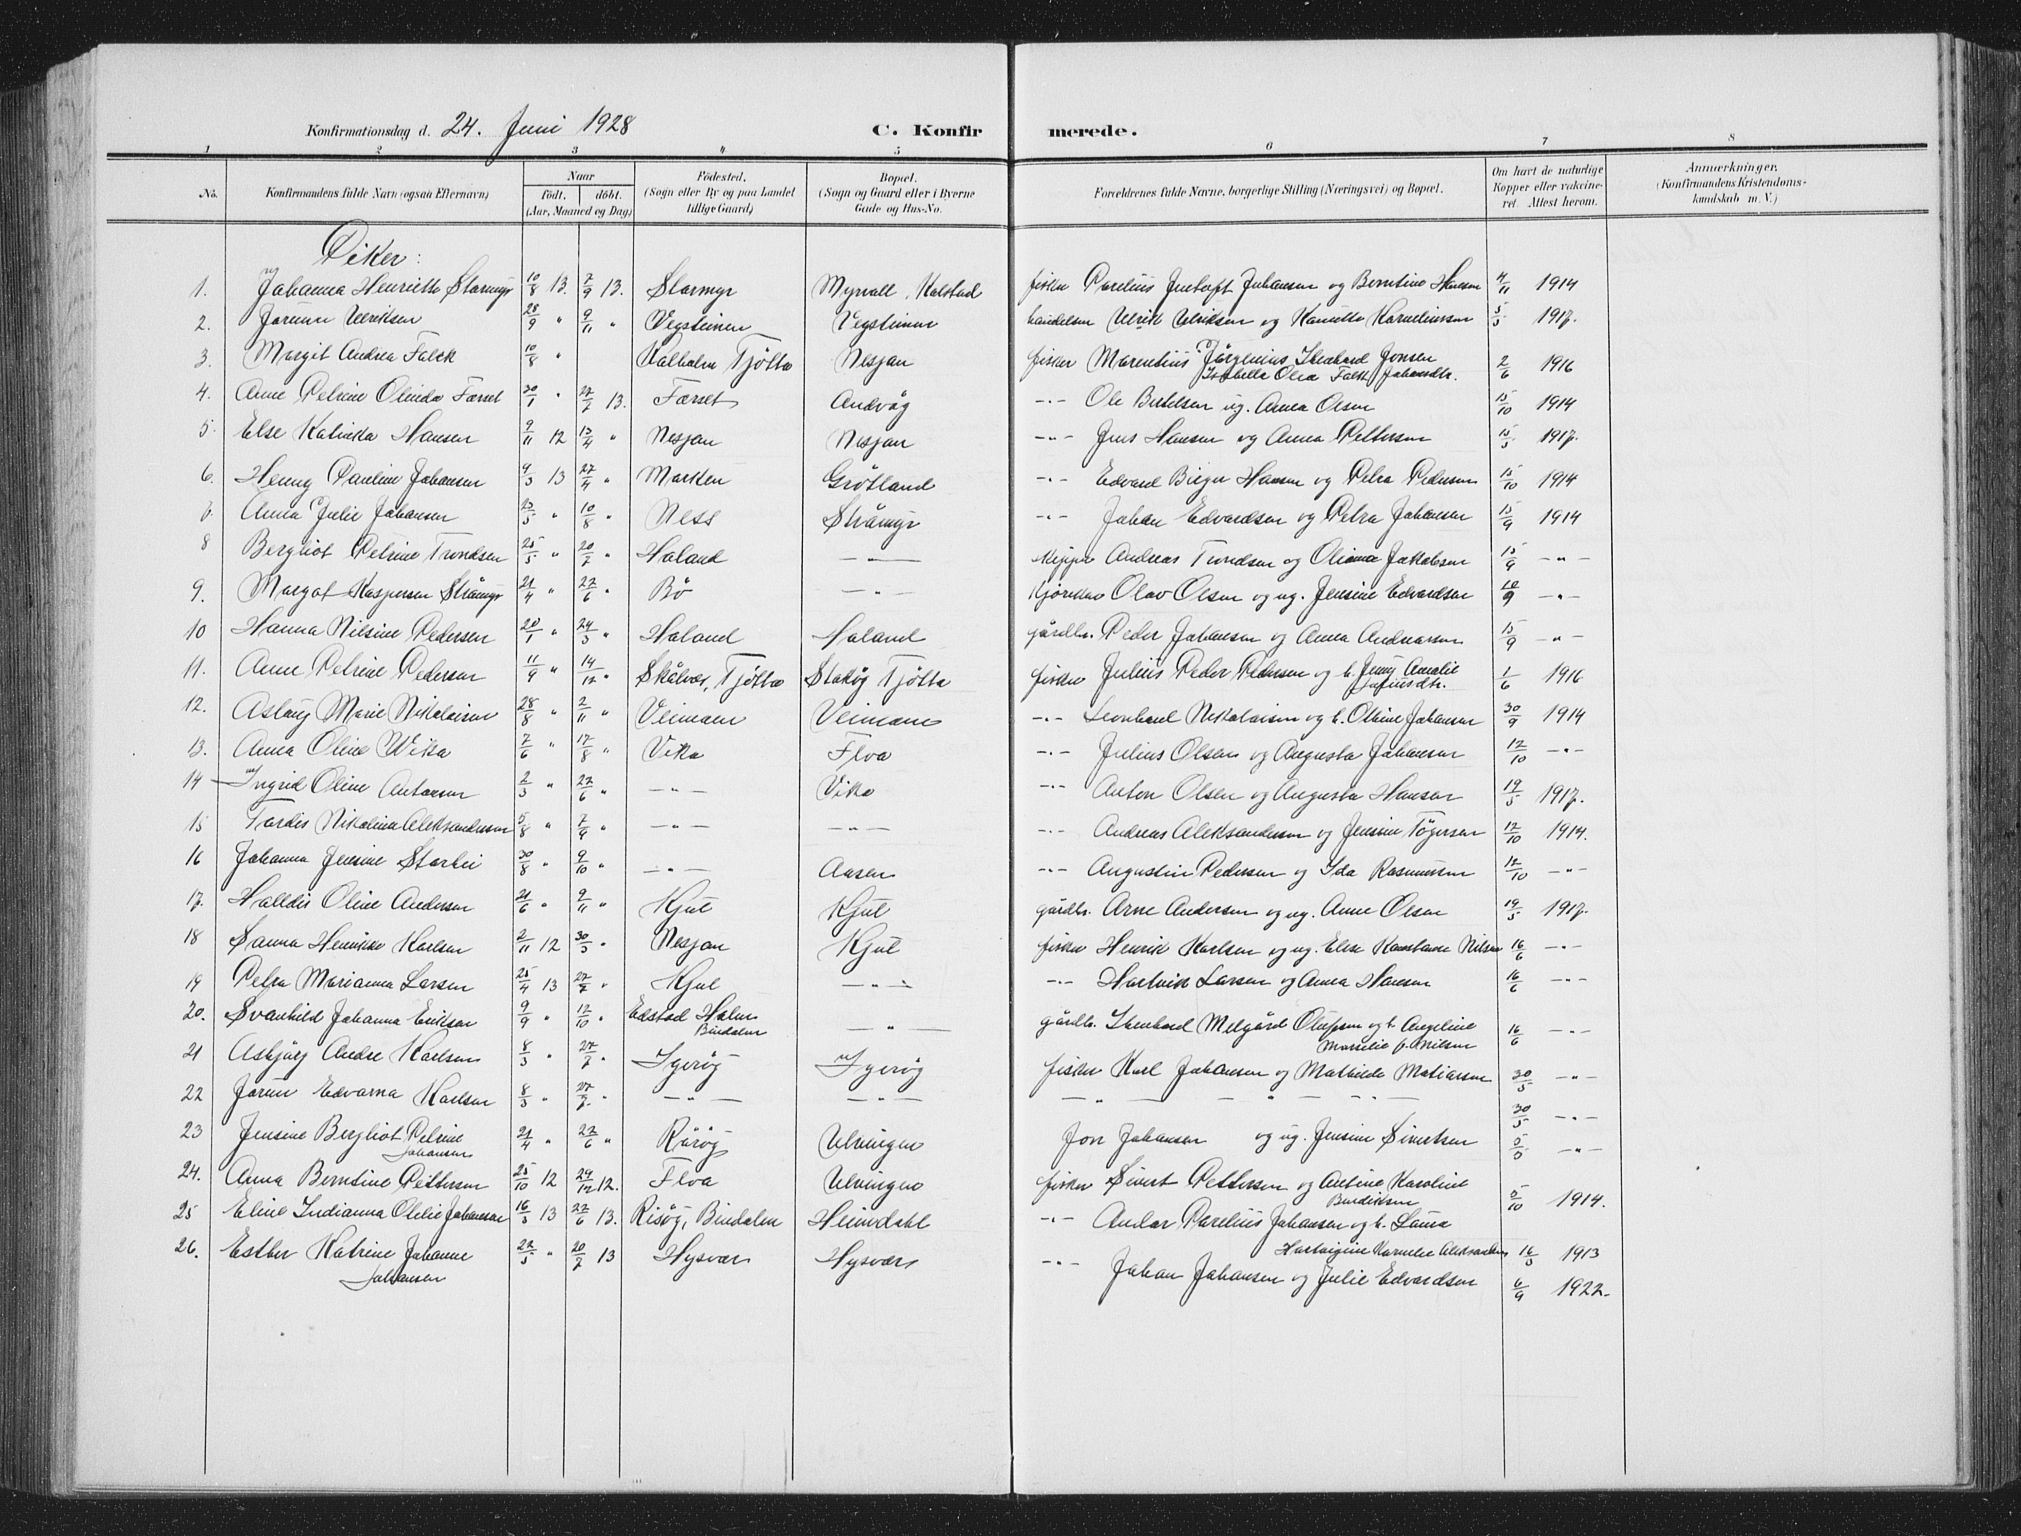 Konfirmationsdag d. 24. Juni 1928 C. Konfir merede.
1 2 3 4 5 6 7 8
No. Konfirmandens fulde Navn (ogsaa Efternavn) Naar født. døbt. (Aar, Maaned og Dag) Fødested. (Sogn eller By og paa Landet tillige Gaard) Bopæl. (Sogn og Gaard eller i Byerne Gade og Hus-No. Forældrenes fulde Navne, borgerlige Stilling (Næringsvei) og Bopæl. Om havt de naturlige Kopper eller vakcineret. Attest herom. Anmærkninger. (Konfirmandens Kristendomskundskab m. V.)
Piker:
1. Johanna Henriette Stormyr 10/8 13. 7/9 13. Stormyr Myrvall, Kolstad fisker Parelius Jentoft Johansen og Berntine Hansen 4/11 1914
2. Jorunn Ulriksen 28/9 " 9/11 " Vegsteinen Vegsteinen handelsm Ulrik Ulriksen og Kanutte Korneliussen 5/5 1917.
3. Margit Andrea Falck 10/8 " Kalholm Tjøtta Nesjan fisker Marentius Jørgenius Ikenhard Jonsen Isabella Olea Falck Johansdtr. 2/6 1916
4. Anne Petrine Olinda Færset 30/1 " 27/7 13. Færset Andvåg -"- Ole Bertelsen ug. Anna Olsen 15/10 1914
5. Else Katinka Hansen 9/11 12 13/4 " Nesjan Nesjan -"- Jens Hansen og Anna Pettersen 15/5 1917.
6. Henny Pauline Johansen 9/3 13 27/4 " Marken Grøtland -"- Edvard Birger Hansen og Petra Pedersen 15/10 1914
7. Anna Julie Johansen 23/5 " 10/8 " Ness Stråmyr -"- Johan Edvardsen og Petra Johansen 15/9 1914
8 Bergliot Petrine Trondsen 25/5 " 20/7 " Haland -"- skipper Andreas Trondsen og Oliana Jakobsen 15/9 -"-
9. Margot Kaspersen Stråmyr 21/4 " 22/6 " Bø -"- Olav Olsen og ug. Jensine Edvardsen 10/9 -"-
10 Hanna Nilsine Pedersen 20/1 " 24/3 " Haland Haland gårdbr. Peder Johansen og Anna Andreassen 15/9 -"-
11. Anne Petrine Pedersen 11/9 " 14/12 " Skålvær, Tjøtta Stokøy Tjøtta fisker Julius Peder Pedersen og h. Jenny Amalie Juliusdtr. 1/6 1916
12. Aslaug Marie Nikolaisen 28/8 " 2/11 " Veimoen Veimoen -"- Leonhard Nikolaisen og h. Othine Johansen 30/9 1914
13. Anna Oline Wika 7/6 " 17/8 " Vika Floa -"- Julius Olsen og Augusta Johansen 12/10 -"-
14 Ingrid Oline Antonsen 2/3 " 22/6 " -"- Vika -"- Anton Olsen og Augusta Hansen 19/5 1917.
15 Tordis Nikoline Aleksandersen 5/8 " 7/9 " -"- -"- -"- Andreas Aleksandersen og Jensine Tøgersen 12/10 1914.
16 Johanna Jensine Storhei 30/8 " 9/10 " -"- Aasen -"- Augustin Pedersen og Ida Rasmussen 12/10 -"-
17. Halldis Oline Andersen 21/6 " 9/11 " Kjul Kjul gårdbr. Arne Andersen og ug. Anne Olsen 19/5 1917.
18 Sanna Henrikke Karlsen 2/11 12 30/3 " Nesjan Kjul fisker Henrik Karlsen og ug. Elise Konstanse Nilsen 16/6 -"-
19 Petra Marianna Larsen 25/4 13 27/7 " Kjul -"- -"- Hartvik Larsen og Anna Hansen 16/6 -"-
20. Svanhild Johanna Eriksen 9/9 " 12/10 " Edstad Holm Bindalen -"- gårdbr. Ikenhard Melgård Olufsen og h. Angeline Marselie f. Nilsen 16/6 -"-
21 Asbjørg Andre Karlsen 8/3 " 27/7 " Igerøy Igerøy fisker Karl Johansen og Mathilde Matiassen 30/5 -"-
22 Jorun Edvarna Karlsen 8/3 " 27/7 " -"- -"- -"- 30/5 -"-
23 Jensine Bergliot Petrine Johansen 21/4 " 22/6 " Rårøy Ulvingen Jon Johansen og ug. Jensine Sivertsen -"-
24. Anna Berntine Pettersen 25/10 12 29/12 12. Floa Ulvingen fisker Sivert Pettersen og Antine Karoline Bendiksen 5/10 1914.
25 Eline Indianna Otelie Johansen 16/3 13 22/6 13. Risøy, Bindalen Heimdahl -"- Andor Parelius Johansen og h. Laura Hartvigine Kornelie Aleksandersen 16/3 1913
26. Esther Katrine Johanne Johansen 22/5 " 20/7 13 Hysvær Hysvær -"- Johan Johansen og Julie Edvardsen 6/9 1922.